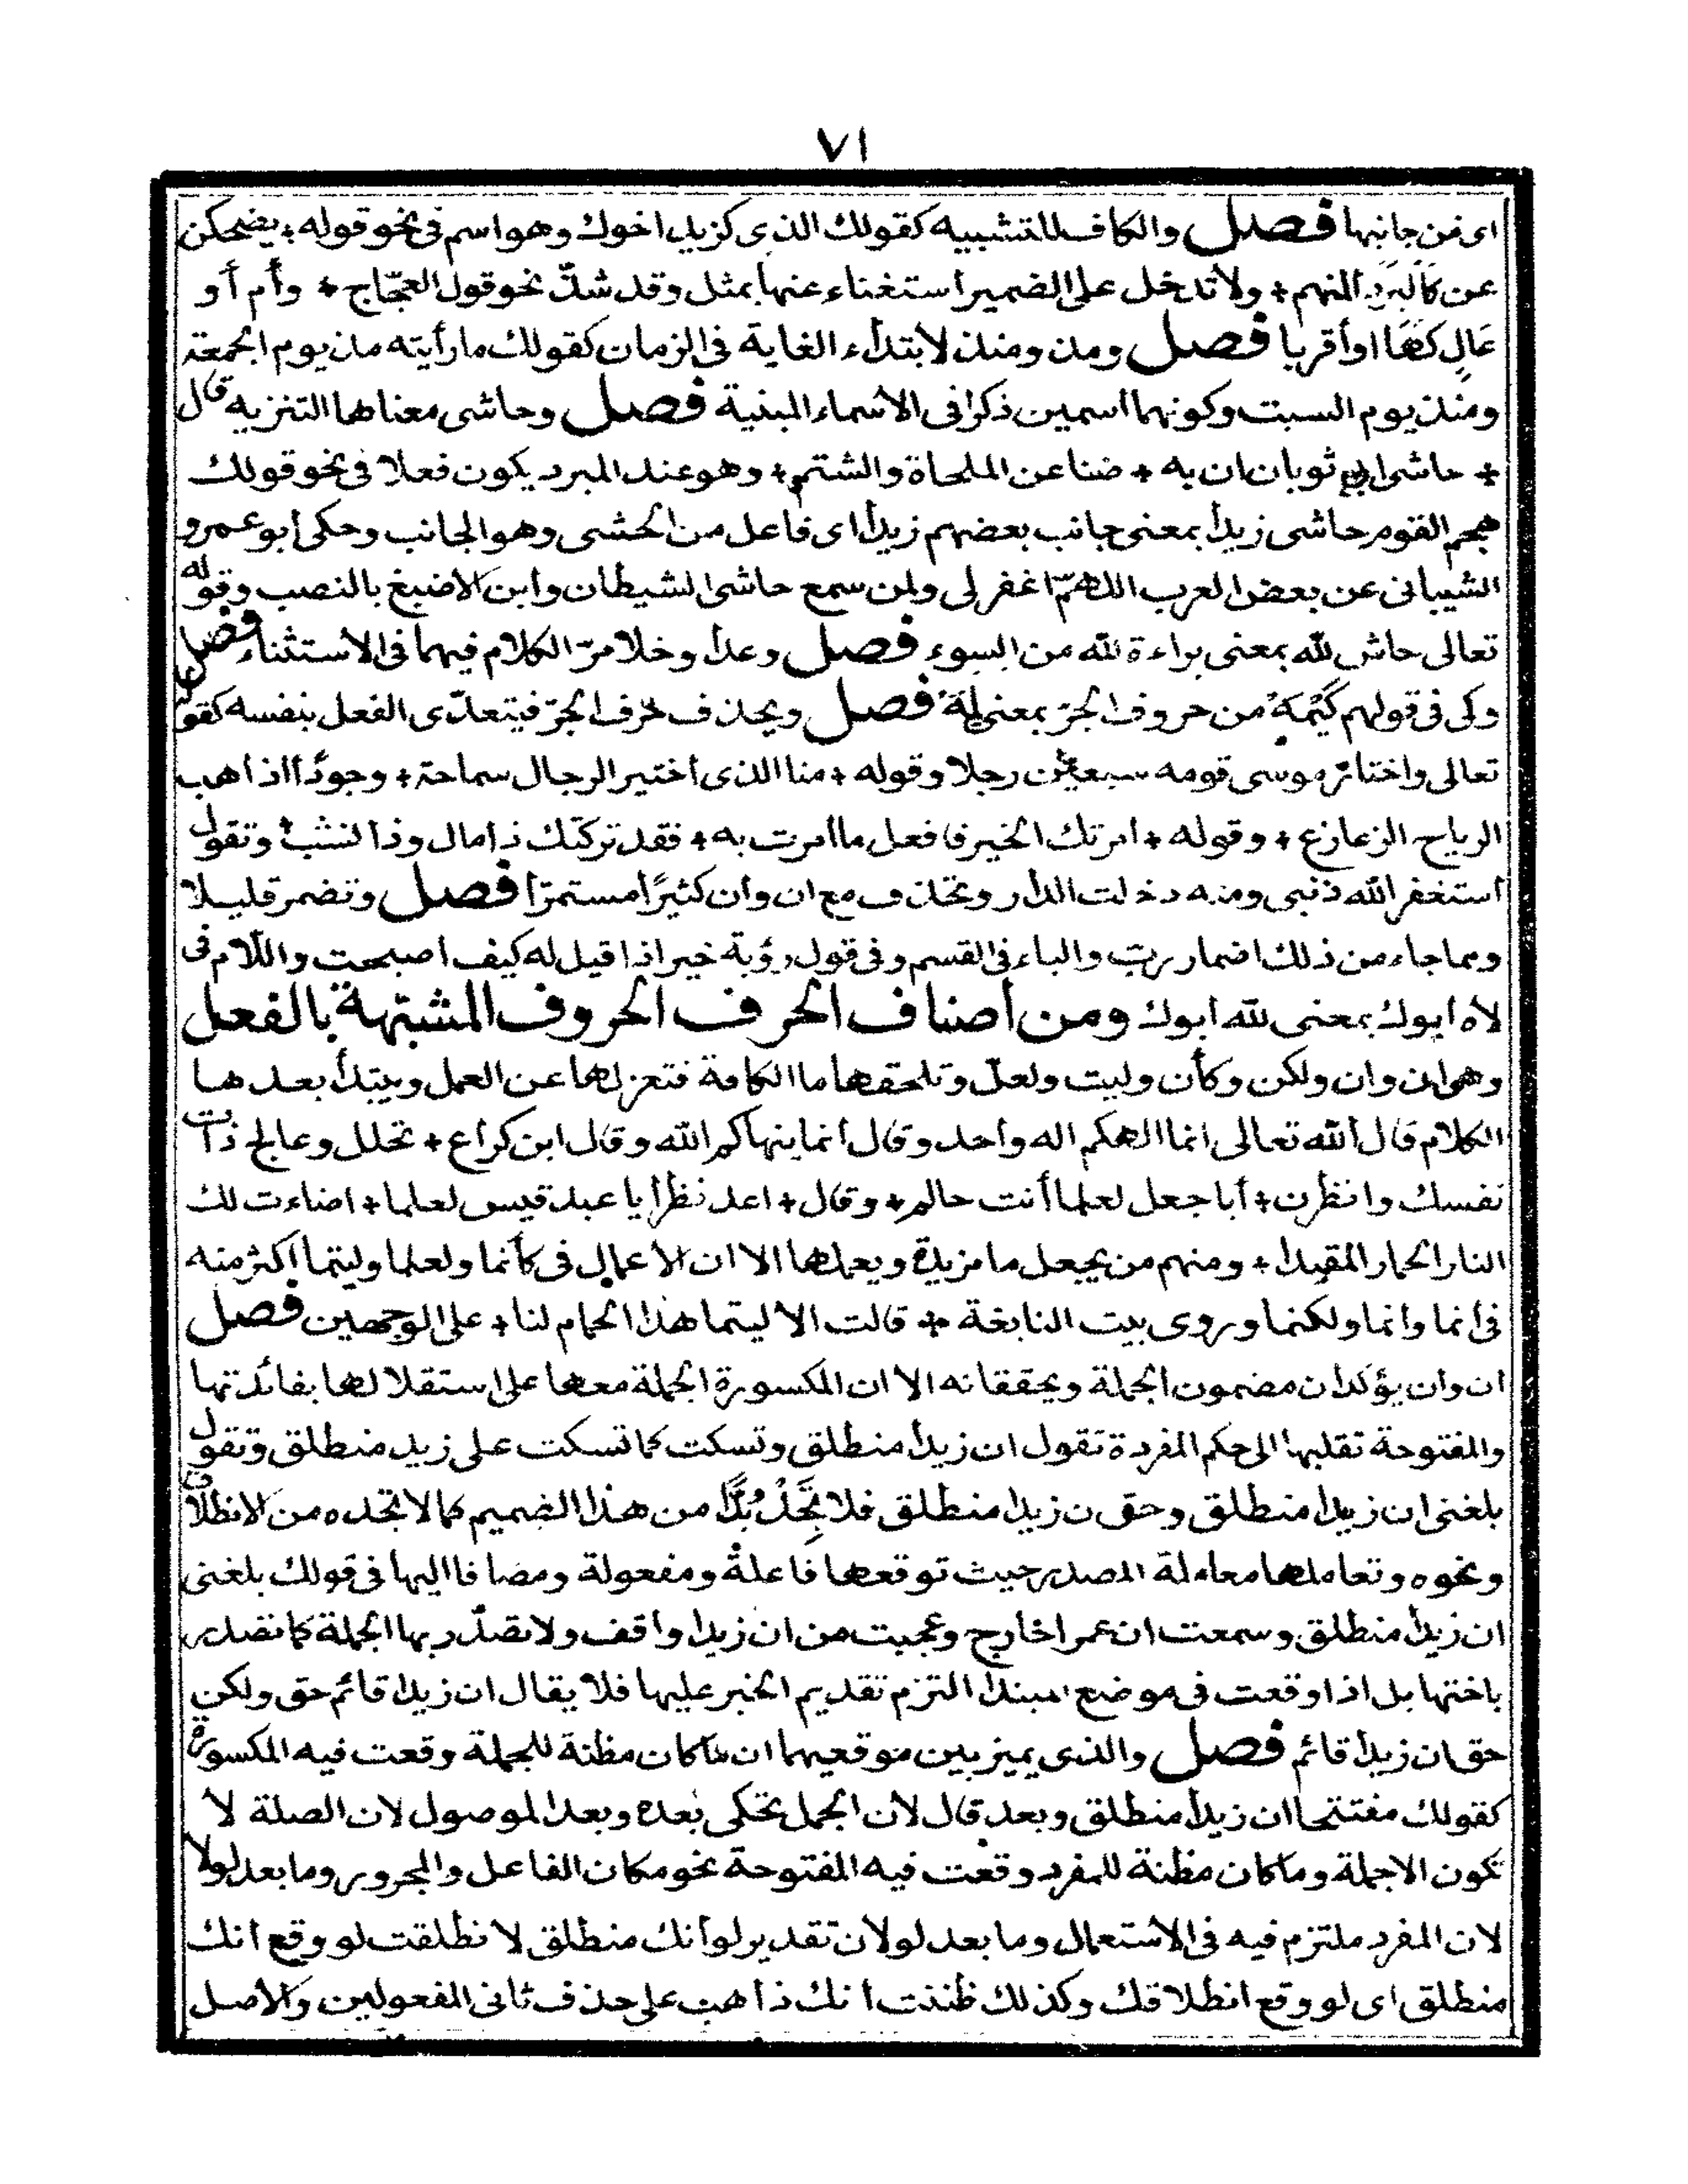 ٧١
اى من جانبها فصل والكاف للتشبيه كقولك الذى كزيد اخوك وهو اسم فى نحو قوله * يضحكن
عن كالبَرَد المنهم * ولا تدخل على الضمير استغناء عنها بمثل وقد شذّ نحو قول العجّاج * وأم أو
عَالٍ كهَا او أقربا فصل ومذ ومنذ لابتداء الغاية فى الزمان كقولك ما رأيته مذ يوم الجمعة
ومنذ يوم السبت وكونهما اسمين ذكر فى الاسماء المبنية فصل وحاشى معناها التنزيه قال
* حاشى ابى ثوبان ان به * ضنا عن الملحاة والشتم * وهو عند المبرد يكون فعلا فى نحو قولك
هجم القوم حاشى زيدا بمعنى جانب بعضهم زيدا اى فاعل من الحشى وهو الجانب وحكى أبو عمرو
الشيبانى عن بعض العرب اللهمّ اغفر لى ولمن سمع حاشى الشيطان وابن الاصبغ بالنصب وقوله
تعالى حاش لله بمعنى براءة لله من السوء فصل وعدا وخلا مرّ الكلام فيهما فى الاستثناء فصل
وكى فى قولهم كَيْمَهْ من حروف الجرّ بمعنى لِمَهْ فصل ويحذف حرف الجرّ فيتعدّى الفعل بنفسه كقوله
تعالى واختار موسى قومه سبعين رجلا وقوله * منا الذى اختير الرجال سماحة * وجودًا اذا هب
الرياح الزعازع * وقوله * امرتك الخير فافعل ما امرت به * فقد تركتك ذا مال وذا نشب * وتقول
استغفر الله ذنبى ومنه دخلت الدار وتحذف مع ان وأن كثيرًا مستمرّا فصل وتضمر قليلا
ومما جاء من ذلك اضمار ربّ والباء فى القسم وفى قول رؤبة خير اذا قيل له كيف اصبحت واللّام فى
لاه ابوك بمعنى لله ابوك ومن أصناف الحرف الحروف المشبهة بالفعل
وهى ان وان ولكن وكأن وليت ولعلّ وتلحقها ما الكافة فتعزلها عن العمل ويبتدأ بعدها
الكلام قال الله تعالى انما الهكم اله واحد وقال انما ينهاكم الله وقال ابن كراع * تحلل وعالج ذات
نفسك وانظرن * أبا جعل لعلما أنت حالم * وقال * اعد نظرا يا عبد قيس لعلما * اضاءت لك
النار الحمار المقيدا * ومنهم من يجعل ما مزيدة ويعملها الا ان الاعمال فى كأنما ولعلما وليتما اكثر منه
فى انما وانما ولكنما وروى بيت النابغة * قالت الا ليتما هذا الحمام لنا * على الوجهين فصل
ان وان يؤكدان مضمون الجملة ويحققانه الا ان المكسورة الجملة معها على استقلالها بفائدتها
والمفتوحة تقلبها الى حكم المفردة تقول ان زيدا منطلق وتسكت كما تسكت على زيد منطلق وتقول
بلغنى ان زيدا منطلق وحق ن زيدا منطلق فلا تَجِدُ بُدًّا من هذا الضميم كما لا تجده من الانطلاق
ونحوه وتعاملها معاملة المصدر حيث توقعها فاعلة ومفعولة ومضافا اليها فى قولك بلغنى
ان زيدا منطلق وسمعت ان عمرا خارج وعجبت من ان زيدا واقف ولا تصدّر بها الجملة كما تصدر
باختها بل اذا وقعت فى موضع المبتدا التزم تقديم الخبر عليها فلا يقال ان زيدا قائم حق ولكن
حق ان زيدا قائم فصل والذى يميز بين موقعيهما ان ما كان مظنة للجملة وقعت فيه المكسورة
كقولك مفتتحا ان زيدا منطلق وبعد قال لأن الجمل تحكى بعده وبعد الموصول لان الصلة لا
تكون الا جملة وما كان مظنة للمفرد وقعت فيه المفتوحة نحو مكان الفاعل والمجرور وما بعد لولا
لان المفرد ملتزم فيه فى الاستعمال وما بعد لو لان تقدير لو أنك منطلق لانطلقت لو وقع انك
منطلق اى لو وقع انطلاقك وكذلك ظننت انك ذاهب على حذف ثانى المفعولين والأصل